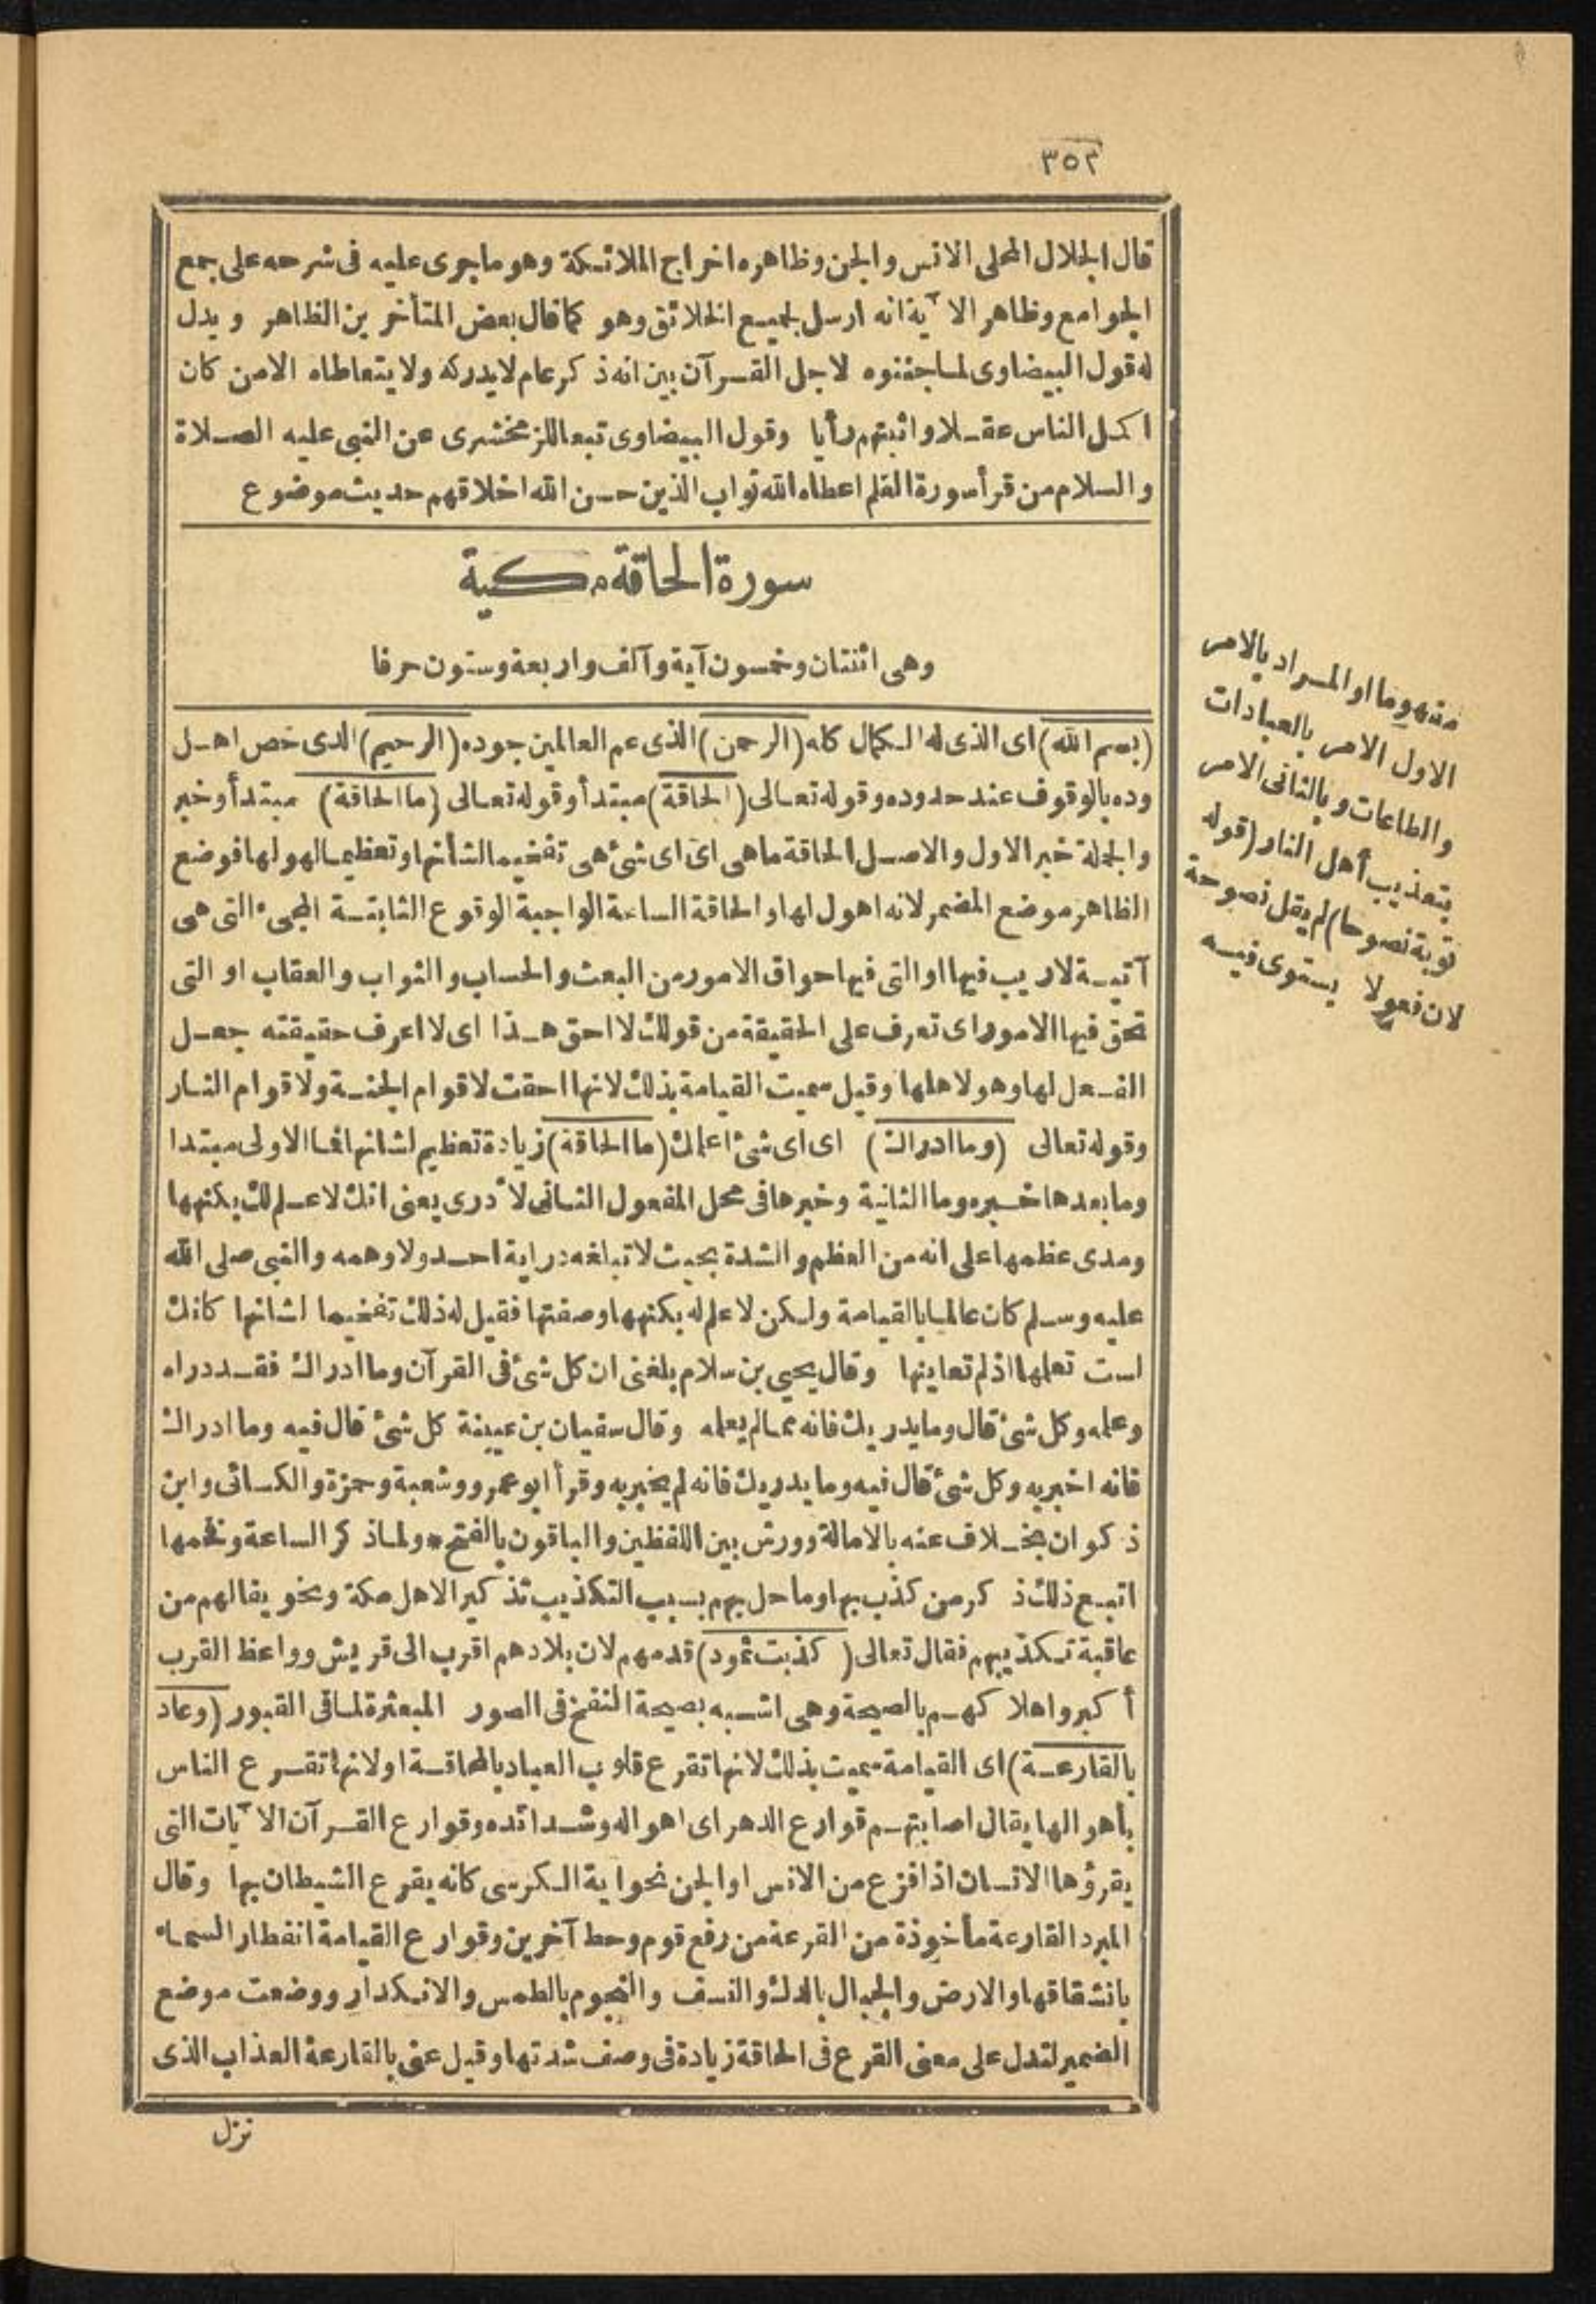 ٣٥٢
قال الجلال المحلى الانس والجن وظاهره اخراج الملائكة وهو ماجرى عليه فى شرحه على جمع
الجوامع وظاهر الآية انه ارسل لجميع الخلائق وهو كما قال بعض المتأخرين الظاهر ويدل
له قول البيضاوى لما جننوه لاجل القرآن بين انه ذكر عام لا يدركه ولا يتعاطاه الا من كان
اكمل الناس عقلا واثبتهم رأيا وقول البيضاوى تبعا للزمخشرى عن النبى عليه الصلاة
والسلام من قرأ سورة القلم اعطاه الله ثواب الذين حسن الله اخلاقهم حديث موضوع
سورة الحاقة مكية
وهى اثنتان وخمسون آية وآلف واربعة وستون حرفا
(بسم الله) اى الذى له الكمال كله (الرحمن) الذى عم العالمين جوده (الرحيم) الذى خص اهل
وده بالوقوف عند حدوده وقوله تعالى (الحاقة) مبتدأ وقوله تعالى (ما الحاقة) مبتدأ وخبر
والجملة خبر الاول والاصل الحاقة ماهى اى اى شئ هى تفخيما لشأنها وتعظيما لهولها فوضع
الظاهر موضع المضمر لانه اهول لها والحاقة الساعة الواجبة الوقوع الثابتة المجئ التى هى
آتية لا ريب فيها او التى فيها حواق الامور من البعث والحساب والثواب والعقاب او التى
تحق فيها الامور اى تعرف على الحقيقة من قولك لا احق هذا اى لا اعرف حقيقته جعل
الفعل لها وهو لاهلها وقيل سميت القيامة بذلك لانها احقت لاقوام الجنة ولاقوام النار
وقوله تعالى (وما ادراك) اى اى شئ اعلمك (ما الحاقة) زيادة تعظيم لشانها فما الاولى مبتدا
وما بعدها خبره وما الثانية وخبرها فى محل المفعول الثانى لادرى يعنى انك لا علم لك بكنهها
ومدى عظمها على انه من العظم والشدة بحيث لا تبلغه دراية احد ولا وهمه والنبى صلى الله
عليه وسلم كان عالما بالقيامة ولكن لا علم له بكنهها وصفتها فقيل له ذلك تفخيما لشانها كانك
لست تعلمها اذ لم تعاينها وقال يحيى بن سلام بلغنى ان كل شئ فى القرآن وما ادراك فقد دراه
وعلمه وكل شئ قال وما يدريك فانه مما لم يعلمه وقال سفيان بن عيينة كل شئ قال فيه وما ادراك
فانه اخبر به وكل شئ قال فيه وما يدريك فانه لم يخبر به وقرأ ابو عمرو وشعبة وحمزة والكسائى وابن
ذكوان بخلاف عنه بالامالة وورش بين اللفظين والباقون بالفتح * ولما ذكر الساعة وفخمها
اتبع ذلك ذكر من كذب بها وما حل بهم بسبب التكذيب تذكيرا لاهل مكة وتخويفا لهم من
عاقبة تكذيبهم فقال تعالى (كذبت ثمود) قدمهم لان بلادهم اقرب الى قريش وواعظ القرب
أكبر واهلاكهم بالصيحة وهى اشبه بصيحة النفخ فى الصور المبعثرة لما فى القبور (وعاد
بالقارعة) اى القيامة سميت بذلك لانها تقرع قلوب العباد بالمخافة او لانها تقرع الناس
بأهوالها يقال اصابتهم قوارع الدهر اى اهواله وشدائده وقوارع القرآن الآيات التى
يقرؤها الانسان اذا فزع من الانس او الجن نحو اية الكرسى كانه يقرع الشيطان بها وقال
المبرد القارعة مأخوذة من القرعة من رفع قوم وحط آخرين وقوارع القيامة انفطار السماء
بانشقاقها والارض والجبال بالدك والنسف والنجوم بالطمس والانكدار ووضعت موضع
الضمير لتدل على معنى القرع فى الحاقة زيادة فى وصف شدتها وقيل عنى بالقارعة العذاب الذى
نزل
مفهوما او المراد بالامر
الاول الامر بالعبادات
والطاعات وبالثانى الامر
بتعذيب أهل النار (قوله
توبة نصوحا) لم يقل نصوحة
لان فعولا يستوى فيه